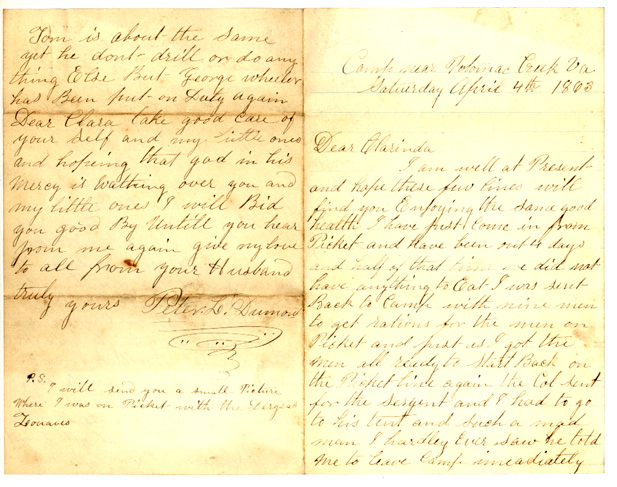 Camp near Potomac Creek Va
Saturday April 4th 1863
Dear Clarinda
I am well at Present
and hope these few lines will
find you Enjoying the same good
health I have just come in from
Picket and have been out 4 days
and half of that time we did not
have anything to Eat I was sent
Back to Camp with nine men
to get rations for the men on
Picket and just is I got the
men all ready to Start Back on
the Picket line again the Col sent
for the Sergent and I had to go
to his tent and Such a mad
man I hardley Ever saw he told
me to leave Camp imeadiately
Tom is about the same
yet he dont drill or do any
thing Else But George wheeler
has Been put on Duty again
Dear Clara take good care of
your self and my little ones
and hopeing that god in his
Mercy is Watching over you and
my little ones I will Bid
you good By Untill you hear
from me again give my love
to all from your Husband
truly yours Peter L. Dumont
P.S.
I will send you a small Picture
Where I was on Picket with the
Zouaves